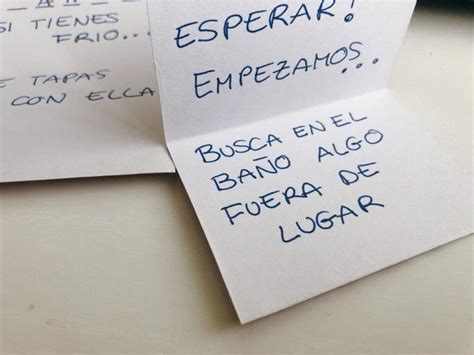 SI TIENES
FRIO...
TAPAS
CON ELLA
ESPERAR!
EMPEZAMOS...
BUSCA EN EL
BAÑO ALGO
FUERA DE
LUGAR